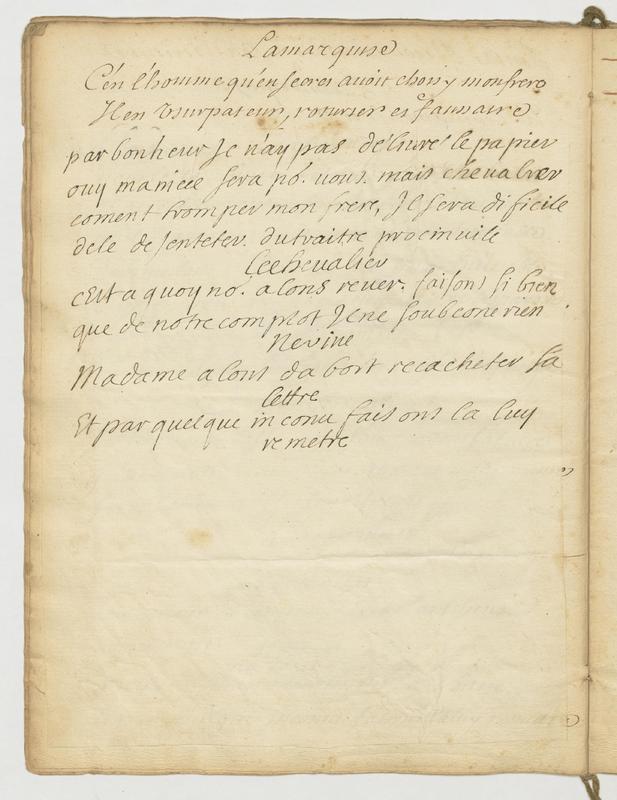 Lamarquise
C'en l'homme qu'en secret avoit choisy monfrere
Il en Usurpateur, roturier et faussaire
par bonheur Je n'ay pas délivré le papier
ouy maniece sera po. vous. mais chevalier
coment tromper mon frere, Il sera dificile
dele desenteter. dutraitre procinvile
Lechevalier
cEst a quoy no. alons rever. faisons si bien
que de notre complot Il ne soubcone rien
Nerine
Madame alons dabort recacheter sa
lettre
Et par quelque inconu faisons la luy
remetre